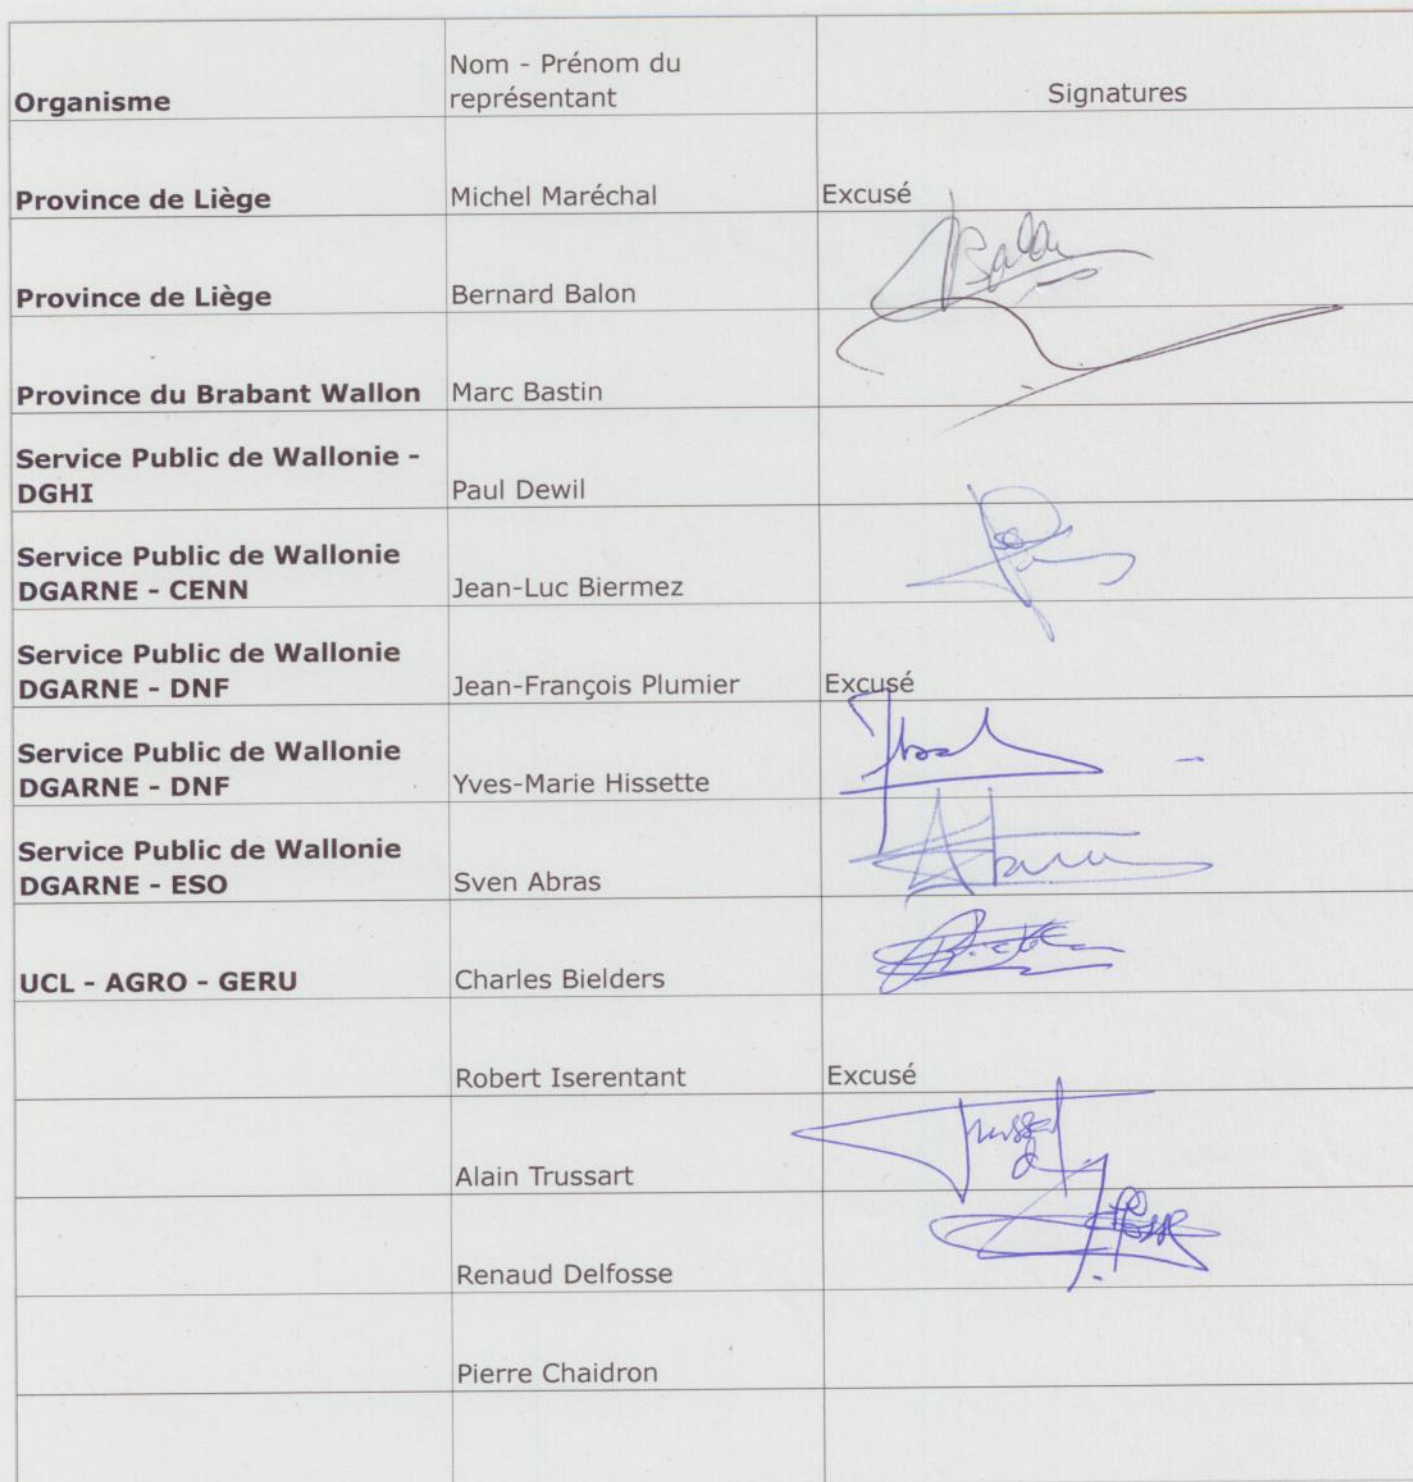 Organisme
Nom - Prénom du
représentant
Signatures
Province de Liège
Michel Maréchal
Excusé
Province de Liège
Bernard Balon
Province du Brabant Wallon
Marc Bastin
Service Public de Wallonie -
DGHI
Paul Dewil
Service Public de Wallonie
DGARNE - CENN
Jean-Luc Biermez
Service Public de Wallonie
DGARNE - DNF
Jean-François Plumier
Excusé
Service Public de Wallonie
DGARNE - DNF
Yves-Marie Hissette
Service Public de Wallonie
DGARNE - ESO
Sven Abras
UCL - AGRO - GERU
Charles Bielders
Robert Iserentant
Excusé
Alain Trussart
Renaud Delfosse
Pierre Chaidron